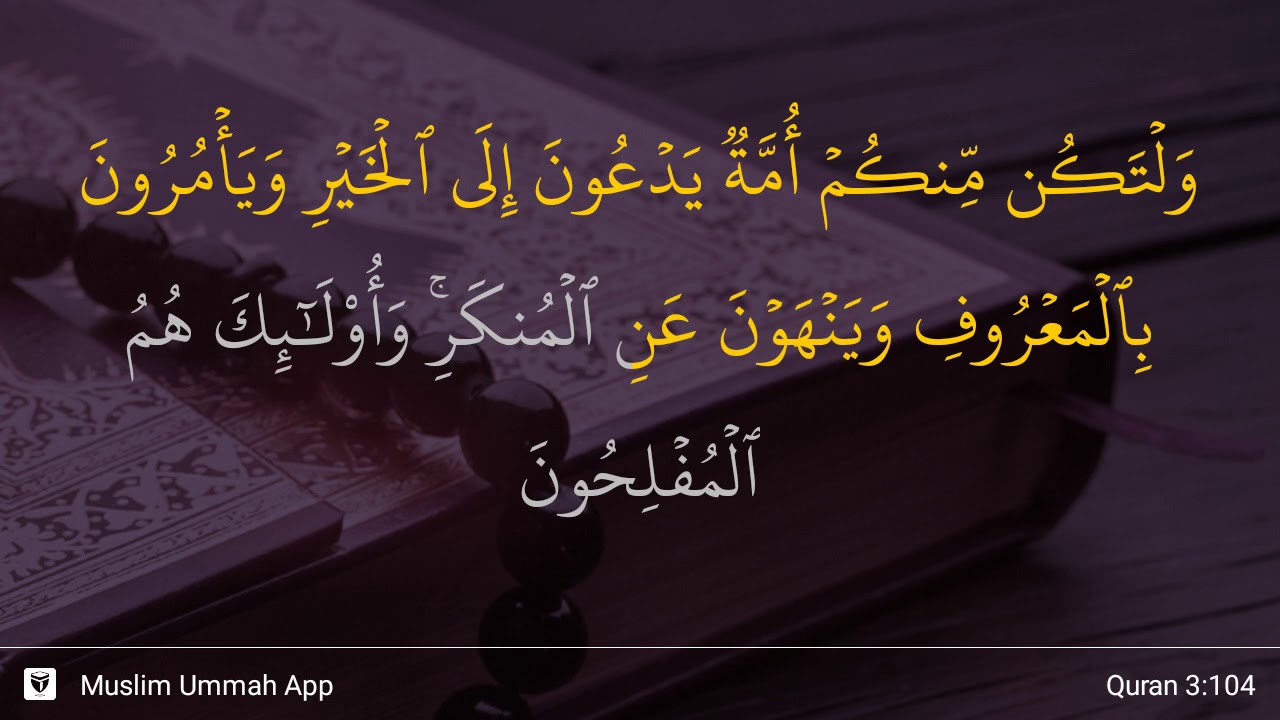 وَلۡتَكُن مِّنكُمۡ أُمَّةٌۭ يَدۡعُونَ إِلَى ٱلۡخَيۡرِ وَيَأۡمُرُونَ
بِٱلۡمَعۡرُوفِ وَيَنۡهَوۡنَ عَنِ ٱلۡمُنكَرِۚ وَأُوْلَٰٓئِكَ هُمُ
ٱلۡمُفۡلِحُونَ
Muslim Ummah App
Quran 3:104